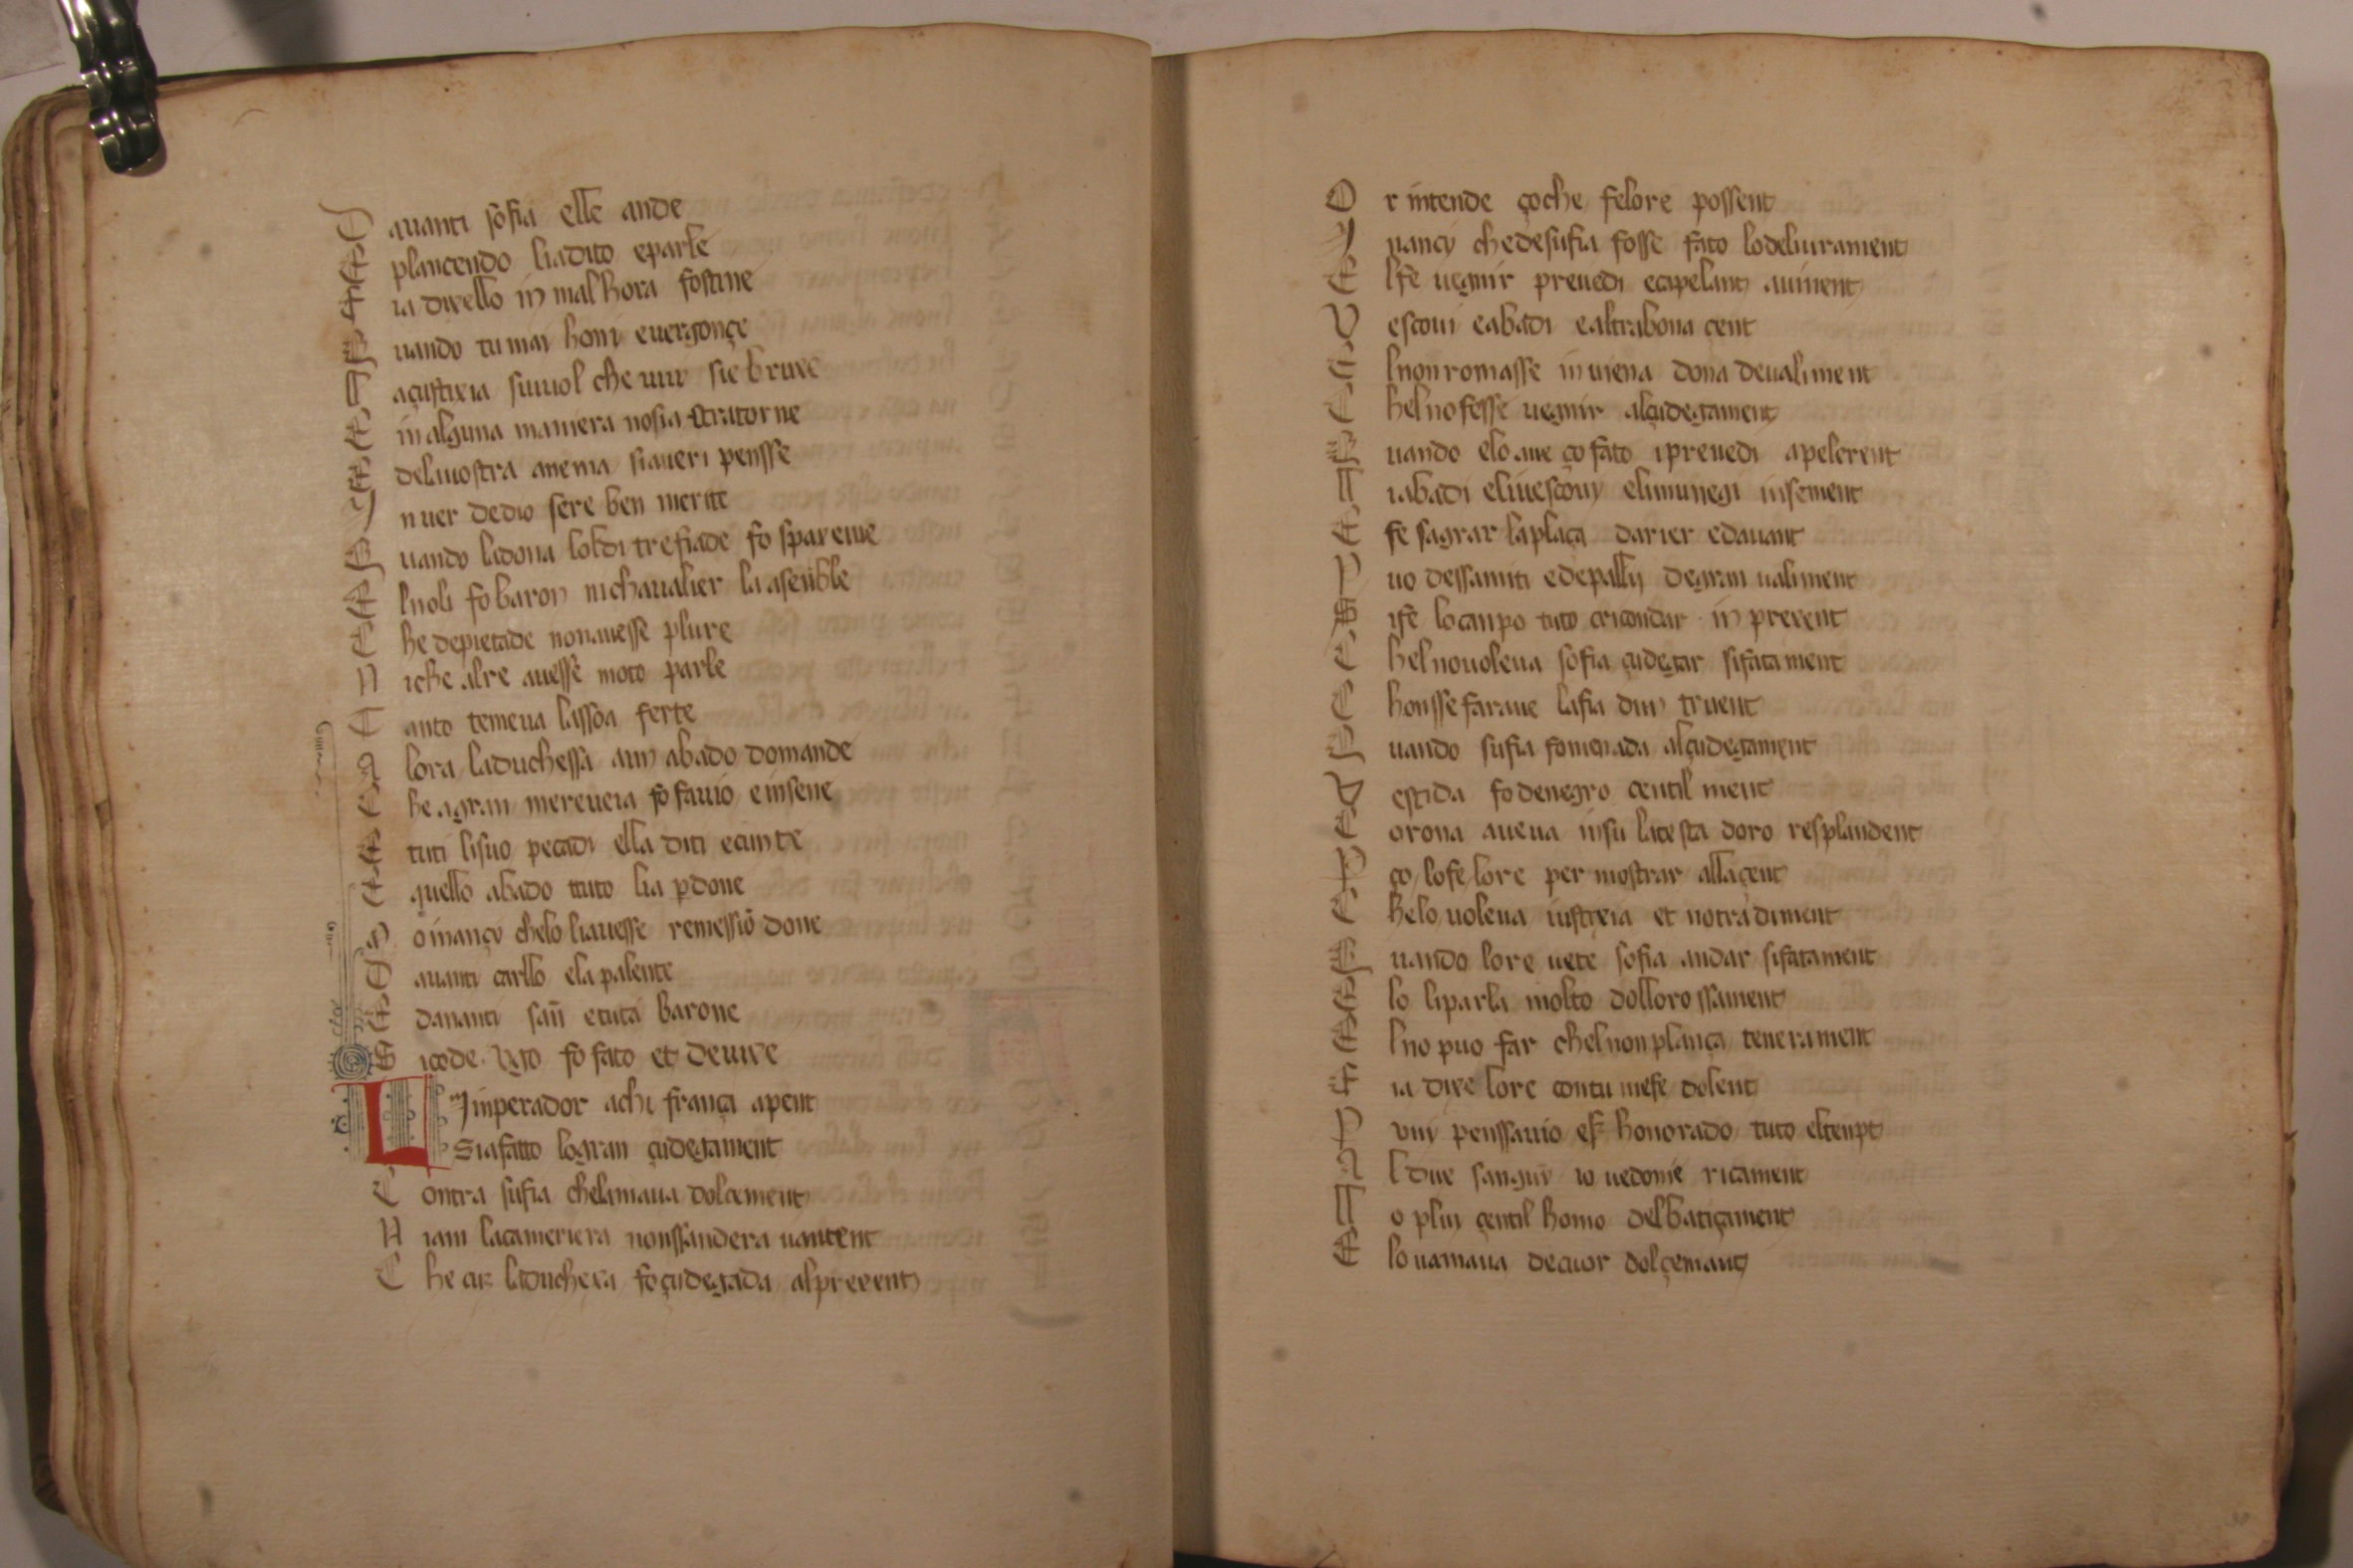 D auanti sofia elle ande
E plancendo liadito eparle
E ia dixello in mal hora fostine
Q uando tu mai honi euergonçe
L açustixia siuuol che uui sie bruxe
E in alguna maniera nosia stratorne
E delauostra anema siaueri pensse
I n uer dedio sere ben merite
Q uando ladona loldi trefiade fo spaxeme
E l noli fo baron nichaualier la asenble
C he depietade nonauesse plure
N iche alre auesse moto parle
T anto temeua lassoa ferte
A lora laduchessa aun abado domande
C he agran mereueia fo sauio einsene
E tuti lisuo pecadi ella diti econte
E quello abado tuto lia pdone
D omançi chelo liauesse remessiõ done
D auanti carllo ela palente
E dananti san etuta barone
S icode. Vgo fo fato et deuixe
L Jinperador achi franca apent
Siafatto logran çudegament
C ontra sufia chelamaua dolcement
N iani lacameriera nonssandera uantent
C he cuz laduchexa foçudegada alprexent
O r intende çoche felore possent
I nançi chedesufia fosse fato lodeliurament
E lfe uegnir preuedi ecapelani auinent
V escoui eabadi ealtrabona cent
E lnonromasse inuiena dona deualiment
C helnofesse uegnir alçudegament
Q uando elo aue ço fato ipreuedi apelerent
L iabadi eliuescoui elimunegi insement
E fe sagrar laplaça darier edauant
P uo dessamiti edepallii degran ualiment
S ife locanpo tuto cricondar in prexent
C helnouoleua sofia çudegar sifatament
C honssefaraue lafia dun truent
Q uando sufia fomenada alçudegament
V estida fodenegro centil ment
C orona aueua insu latesta doro resplandent
P ço lofe lore per mostrar allaçent
C helo uoleua iustixia et notradiment
Q uando lore uete sofia andar sifatament
E lo liparla molto dollorossament
E lno puo far chelnonplança tenerament
E ia dixe lore contu mefe dolent
P vui penssauio eser honorado tuto eltenpt
A l due sangui io uedonie ricament
L o plui çentil homo delbatiçament
E lo uamaua decuor dolçemant